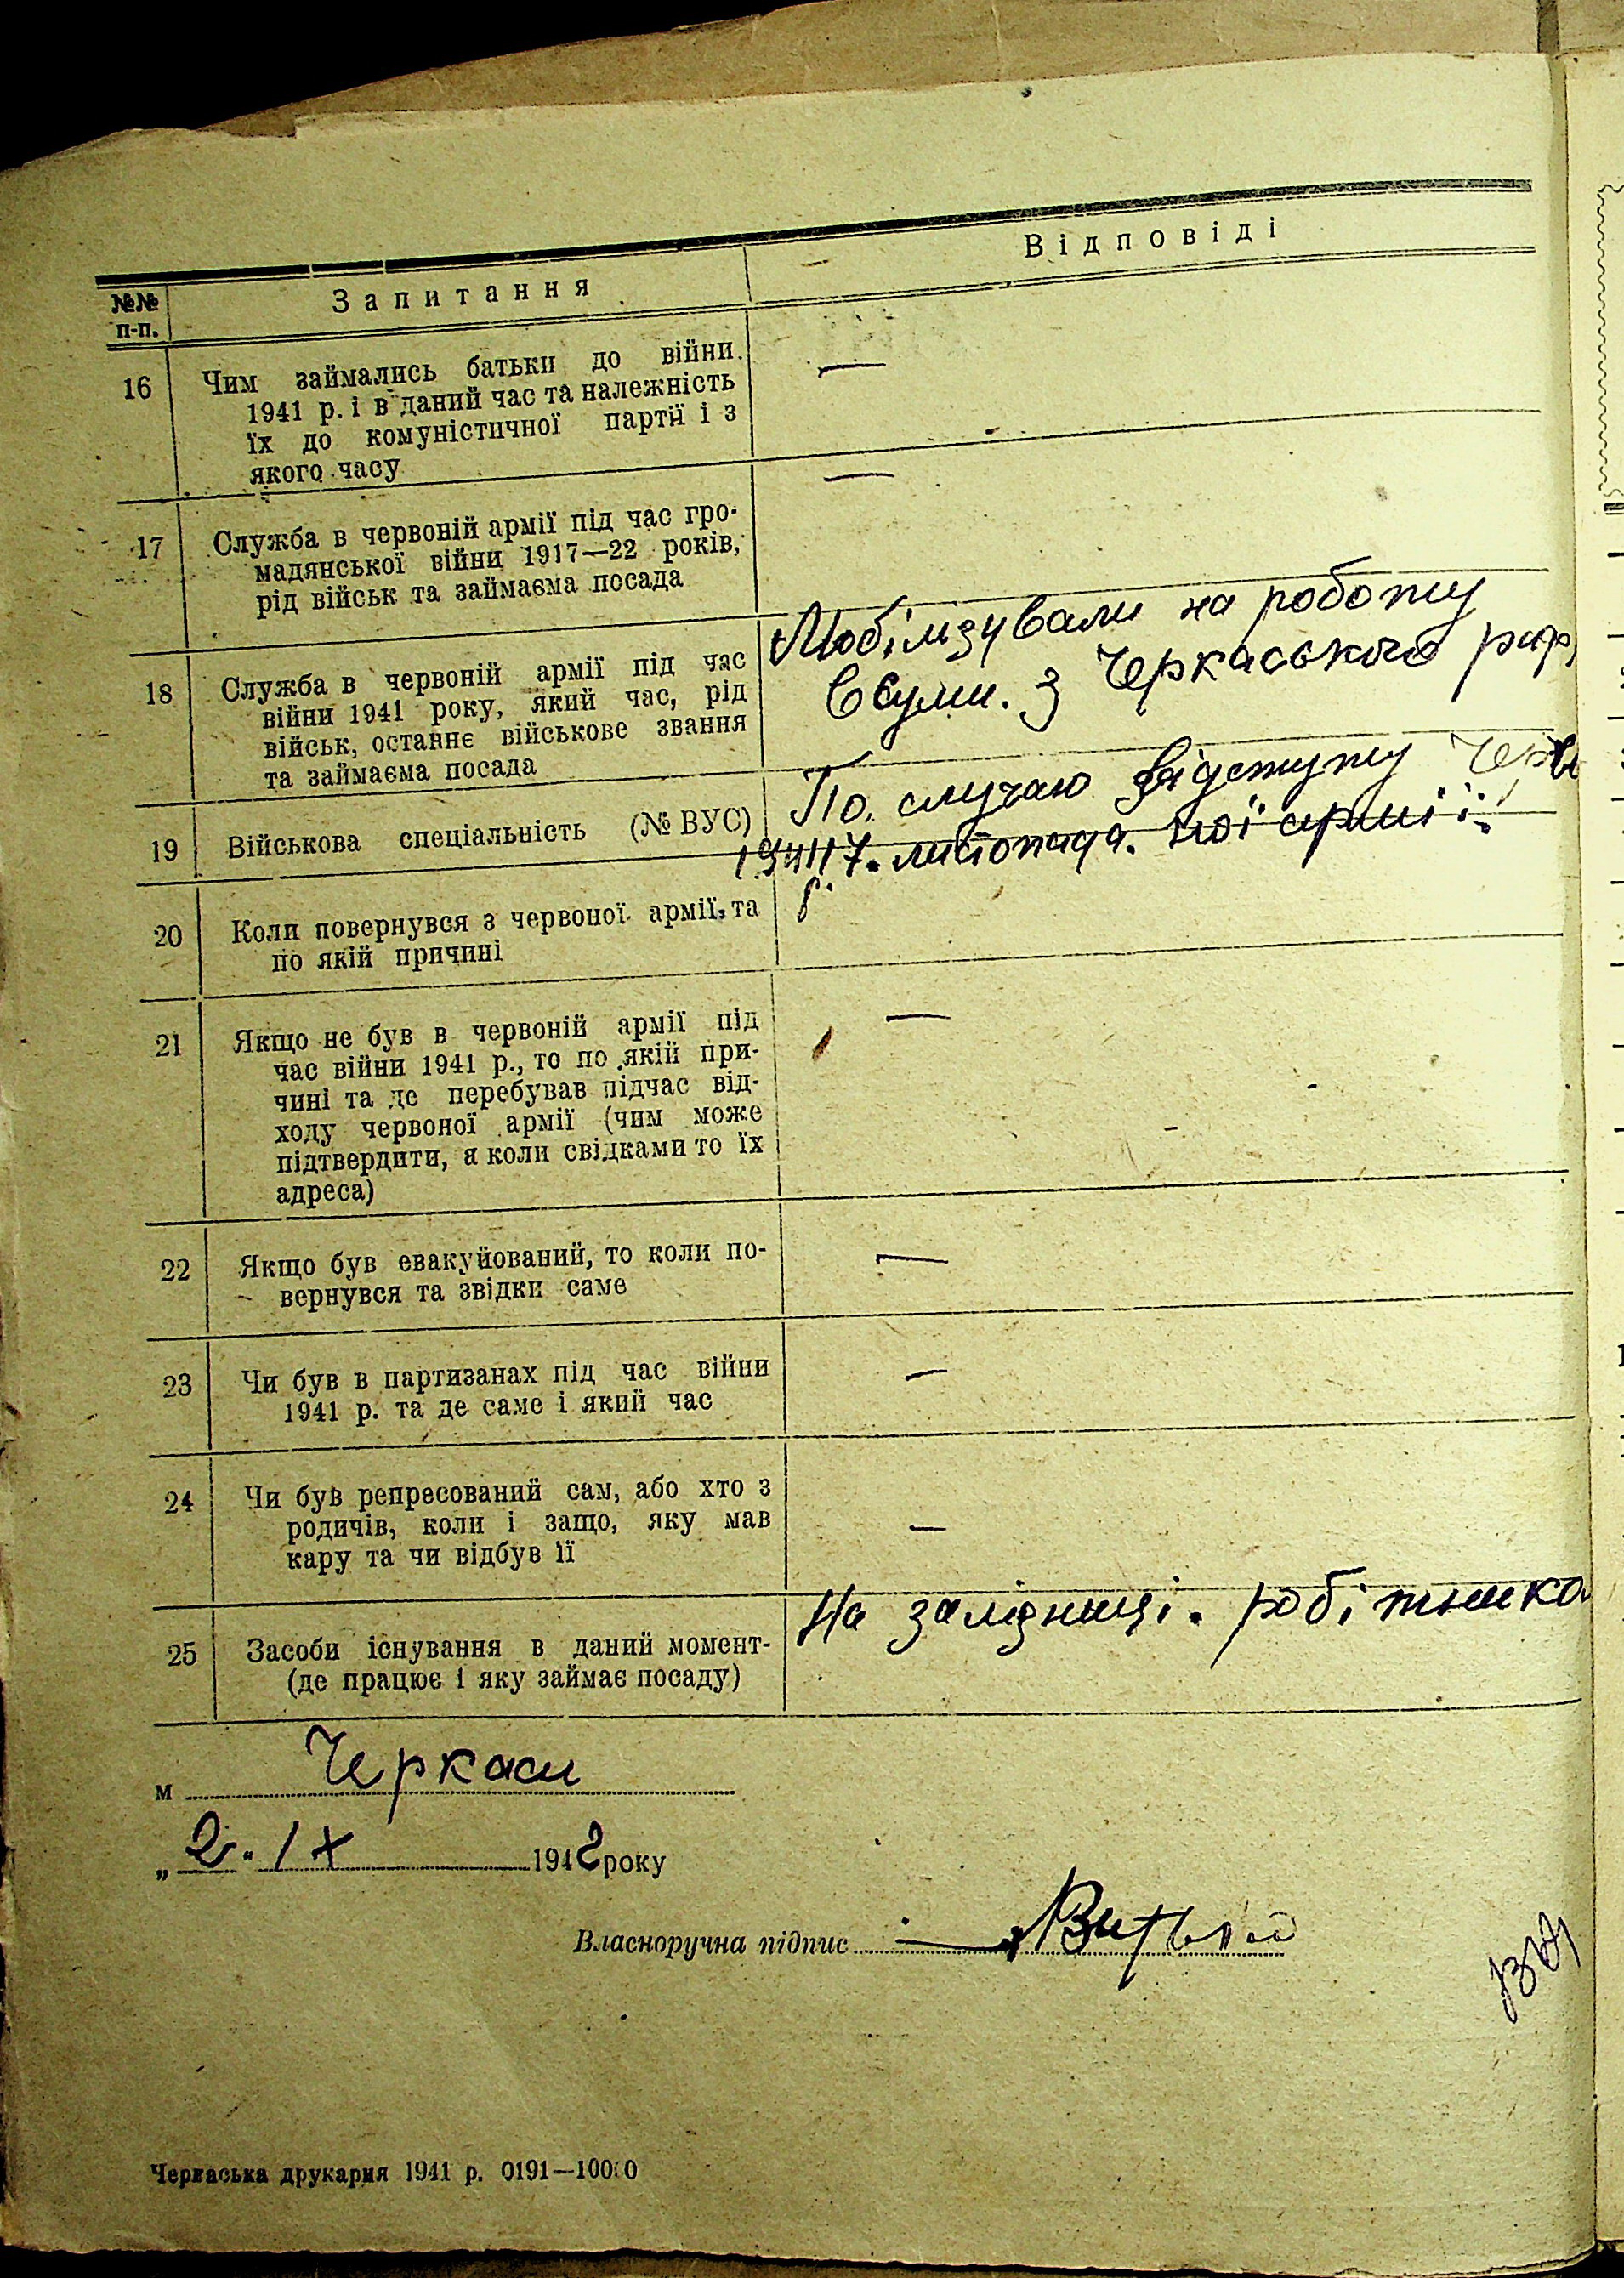 №№ п-п.
Запитання
Відповіді
16
Чим займались батьки до війни
1941 р. і в даний час та належність
їх до комуністичної партії і з
якого часу
—
17
Служба в червоній армії під час гро-
мадянської війни 1917—22 років,
рід військ та займаєма посада
—
18
Служба в червоній армії під час
війни 1941 року, який час, рід
військ, останнє військове звання
та займаєма посада
Мобілізували на роботу
в Суми. з Черкаського
19
Військова спеціальність (№ ВУС)
По случаю відступу Черво
ної армії.
1941 17. листопада.
20
Коли повернувся з червоної армії, та
по якій причині
21
Якщо не був в червоній армії під
час війни 1941 р., то по якій при-
чині та де перебував підчас від-
ходу червоної армії (чим може
підтвердити, я коли свідками то їх
адреса)
—
22
Якщо був евакуйований, то коли по-
вернувся та звідки саме
—
23
Чи був в партизанах під час війни
1941 р. та де саме і який час
—
24
Чи був репресований сам, або хто з
родичів, коли і защо, яку мав
кару та чи відбув її
—
25
Засоби існування в даний момент-
(де працює і яку займає посаду)
На залізниці. робітника
м Черкаси
„ 2 " IX 1942 року
Власноручна підпис
Черкаська друкарня 1941 р. 0191—10000